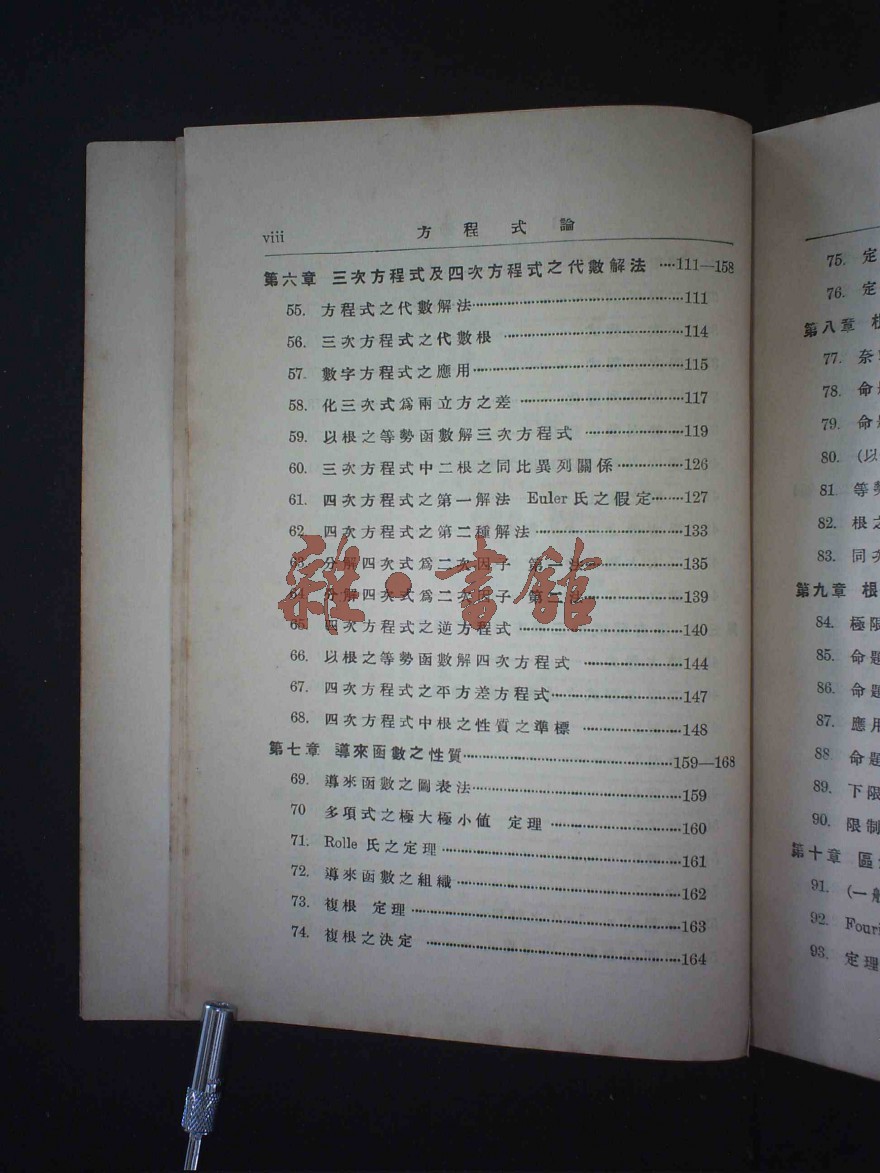 viii 方程式論
第六章 三次方程式及四次方程式之代數解法 ····111—158
55. 方程式之代數解法····111
56. 三次方程式之代數根 ····114
57. 數字方程式之應用····115
58. 化三次式爲兩立方之差 ····117
59. 以根之等勢函數解三次方程式 ····119
60. 三次方程式中二根之同比異列關係····126
61. 四次方程式之第一解法 Euler氏之假定····127
62. 四次方程式之第二種解法····133
63. 分解四次式爲二次因子 第一法····135
64. 分解四次式爲二次因子 第二法····139
65. 四次方程式之逆方程式 ····140
66. 以根之等勢函數解四次方程式 ····144
67. 四次方程式之平方差方程式····147
68. 四次方程式中根之性質之準標 ····148
第七章 導來函數之性質····159—168
69. 導來函數之圖表法····159
70 多項式之極大極小值 定理 ····160
71. Rolle 氏之定理····161
72. 導來函數之組織····162
73. 複根 定理····163
74. 複根之決定 ····164
雜·書館
75. 定
76. 定
第八章 根
77.
78. 命
79. 命
80. (以
81. 等勢
82. 根之
83. 同次
第九章 根
84. 極限
85. 命題
86. 命題
87. 應用
88 命題
89. 下限
90. 限制
第十章 區
91. (一般
92. Fouri
93. 定理